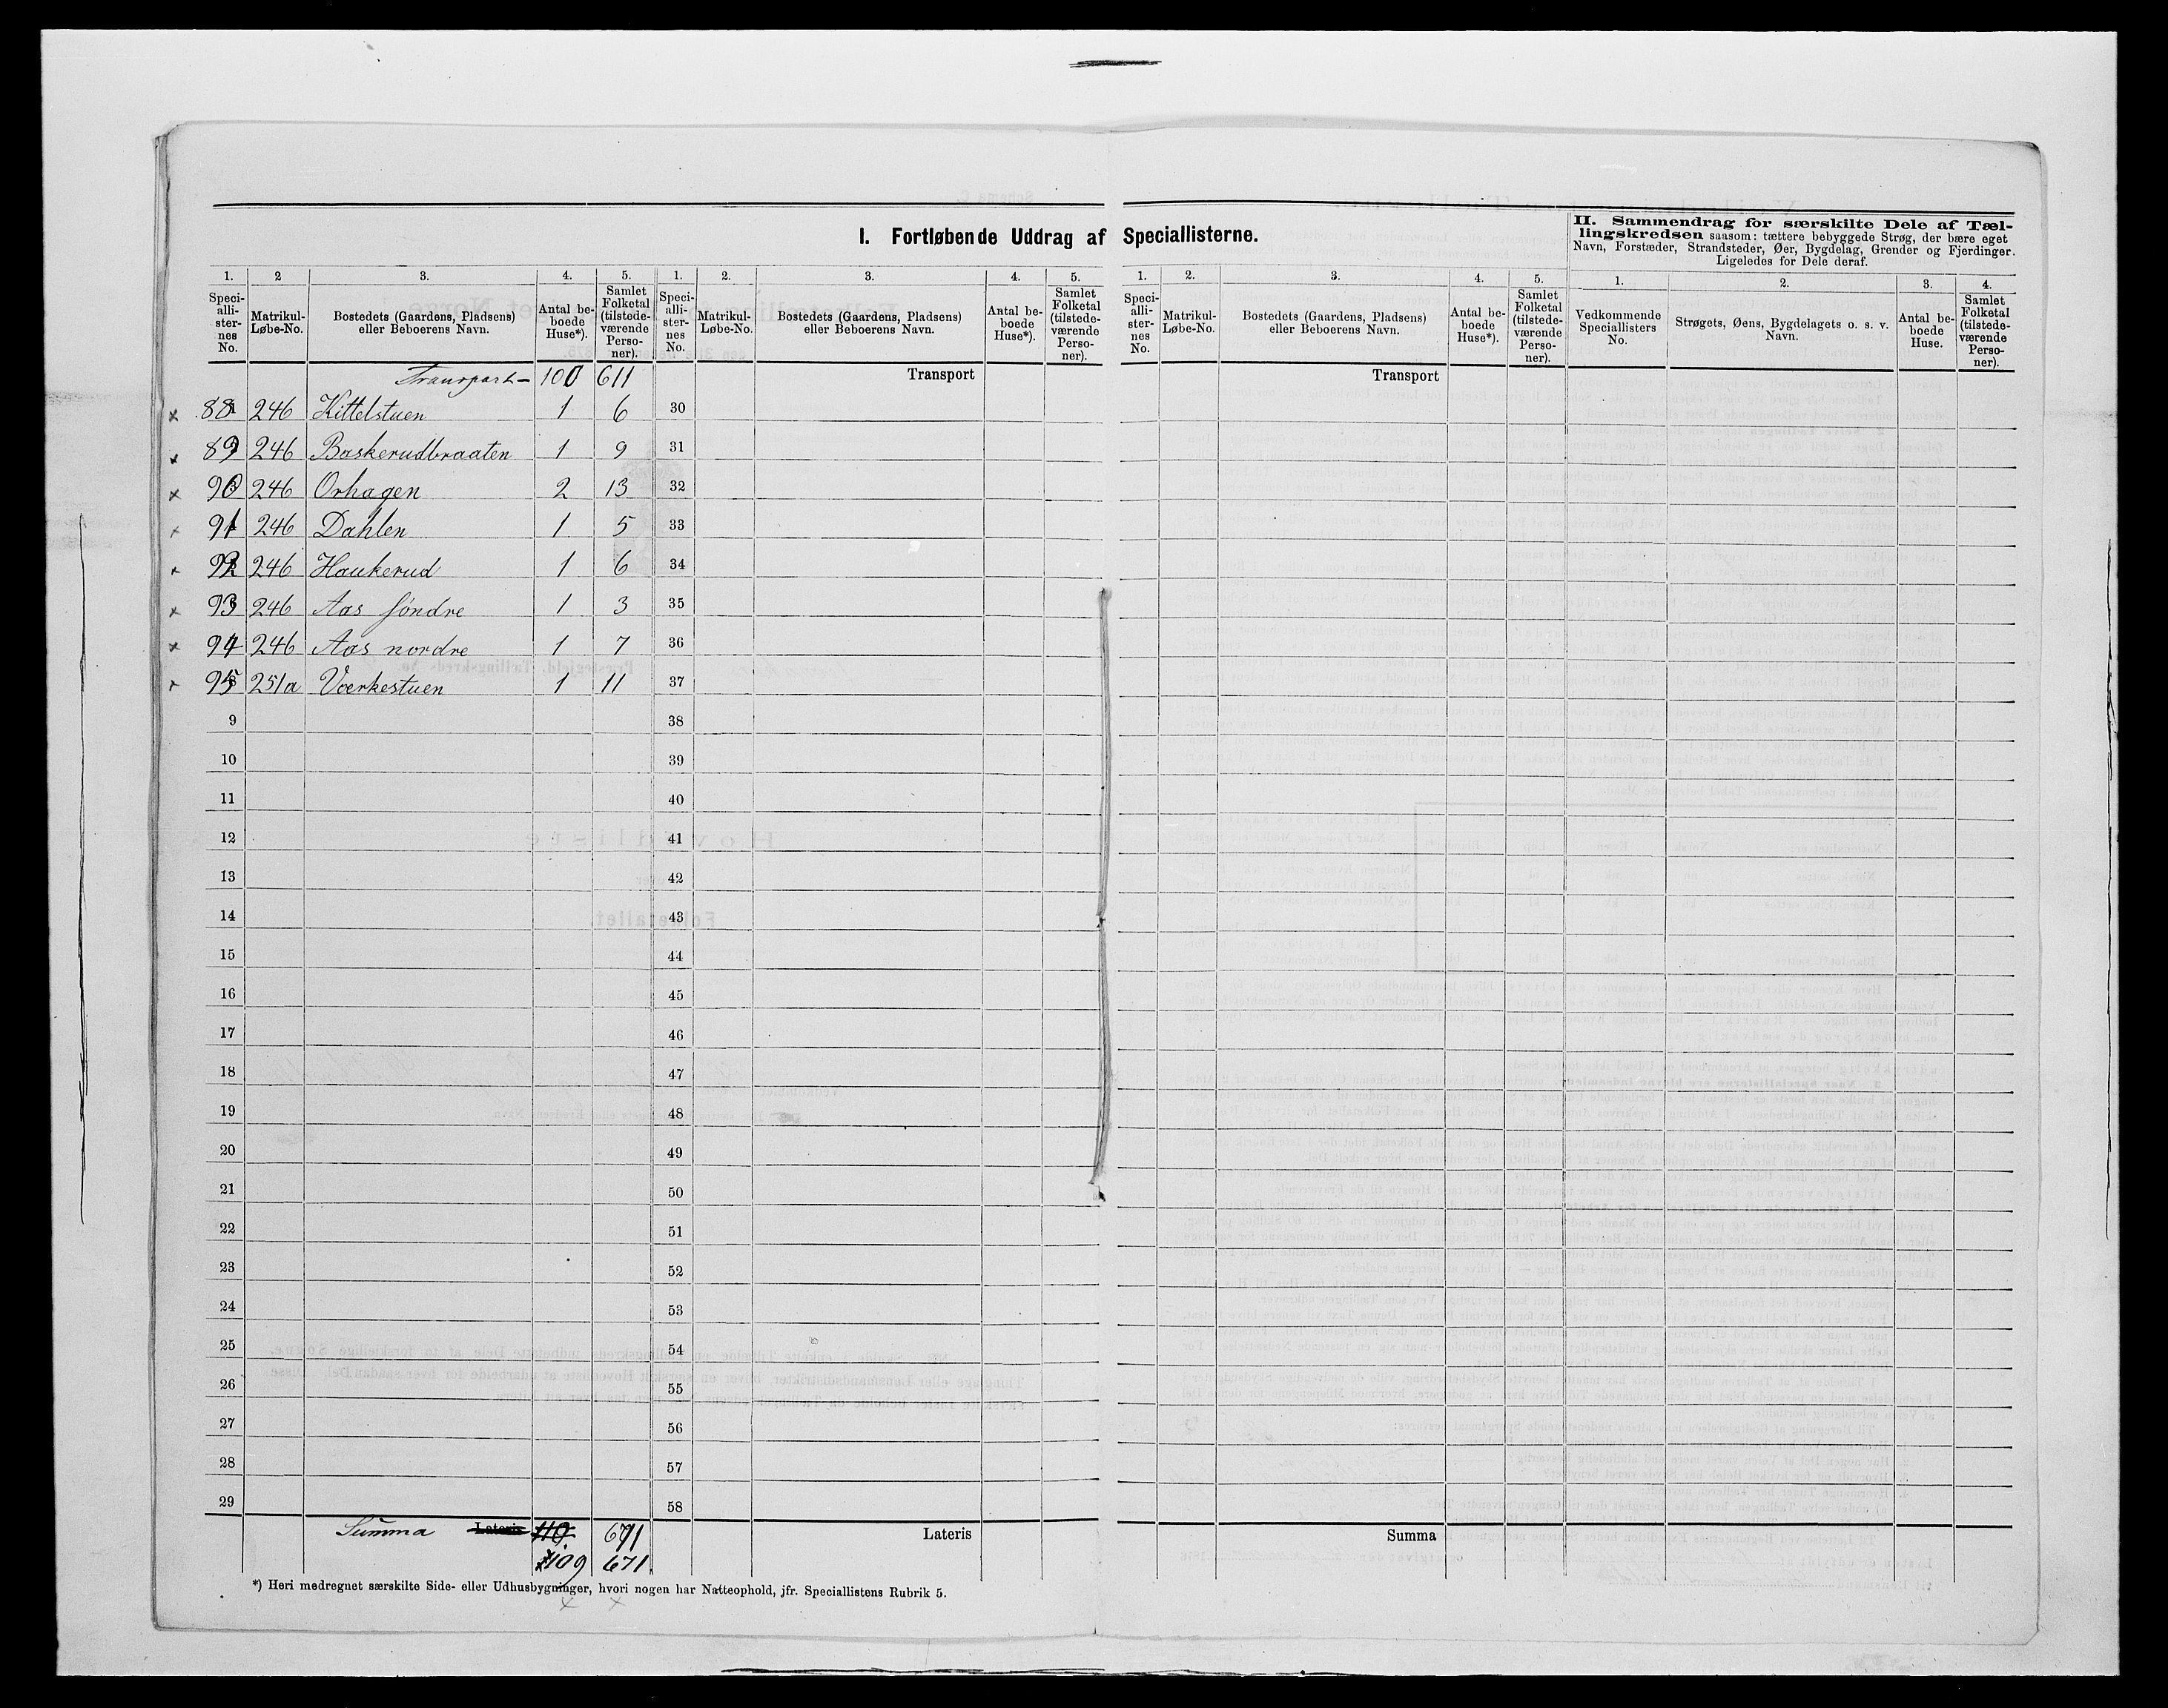 I. Fortløbende Uddrag af Speciallisterne.
II. Sammendrag for særskilte Dele af Tæl-
lingskredsen saasom: tættere bebyggede Strøg, der bære eget
Navn, Forstæder, Strandsteder, Øer, Bygdelag, Grender og Fjerdinger.
Ligeledes for Dele deraf.
1. 2 3. 4. 5. 1. 2. 3. 4. 5. 1. 2. 3. 4. 5. 1. 2. 3. 4.
Speci-alli-ster-nes No. Matrikul-Løbe-No. Bostedets (Gaardens, Pladsens) eller Beboerens Navn. Antal be-boede Huse*). Samlet Folketal (tilstede-værende Perso-ner).
Speci-alli-ster-nes No. Matrikul-Løbe-No. Bostedets (Gaardens, Pladsens) eller Beboerens Navn. Antal be-boede Huse*). Samlet Folketal (tilstede-værende Perso-ner).
Speci-alli-ster-nes No. Matrikul-Løbe-No. Bostedets (Gaardens, Pladsens) eller Beboerens Navn. Antal be-boede Huse*). Samlet Folketal (tilstede-værende Perso-ner).
Vedkommende Speciallisters No. Strøgets, Øens, Bygdelagets o. s. v. Navn. Antal be-boede Huse. Samlet Folketal (tilstede-værende Perso-ner).
Transport 100 611 Transport Transport
88 246 Kittelstuen 1 6 30
89 246 Baskerudbraaten 1 9 31
90 246 Orhagen 2 13 32
91 246 Dahlen 1 5 33
92 246 Haukerud 1 6 34
93 246 Aas søndre 1 3 35
94 246 Aas nordre 1 7 36
95 251a Værkestuen 1 11 37
9 38
10 39
11 40
12 41
13 42
14 43
15 44
16 45
17 46
18 47
19 48
20 49
21 50
22 51
23 52
24 53
25 54
26 55
27 56
28 57
29 58
Summa Lateris 110. 671 Lateris Summa
109 671.
*) Heri medregnet særskilte Side- eller Udhusbygninger, hvori nogen har Natteophold, jfr. Speciallistens Rubrik 5.